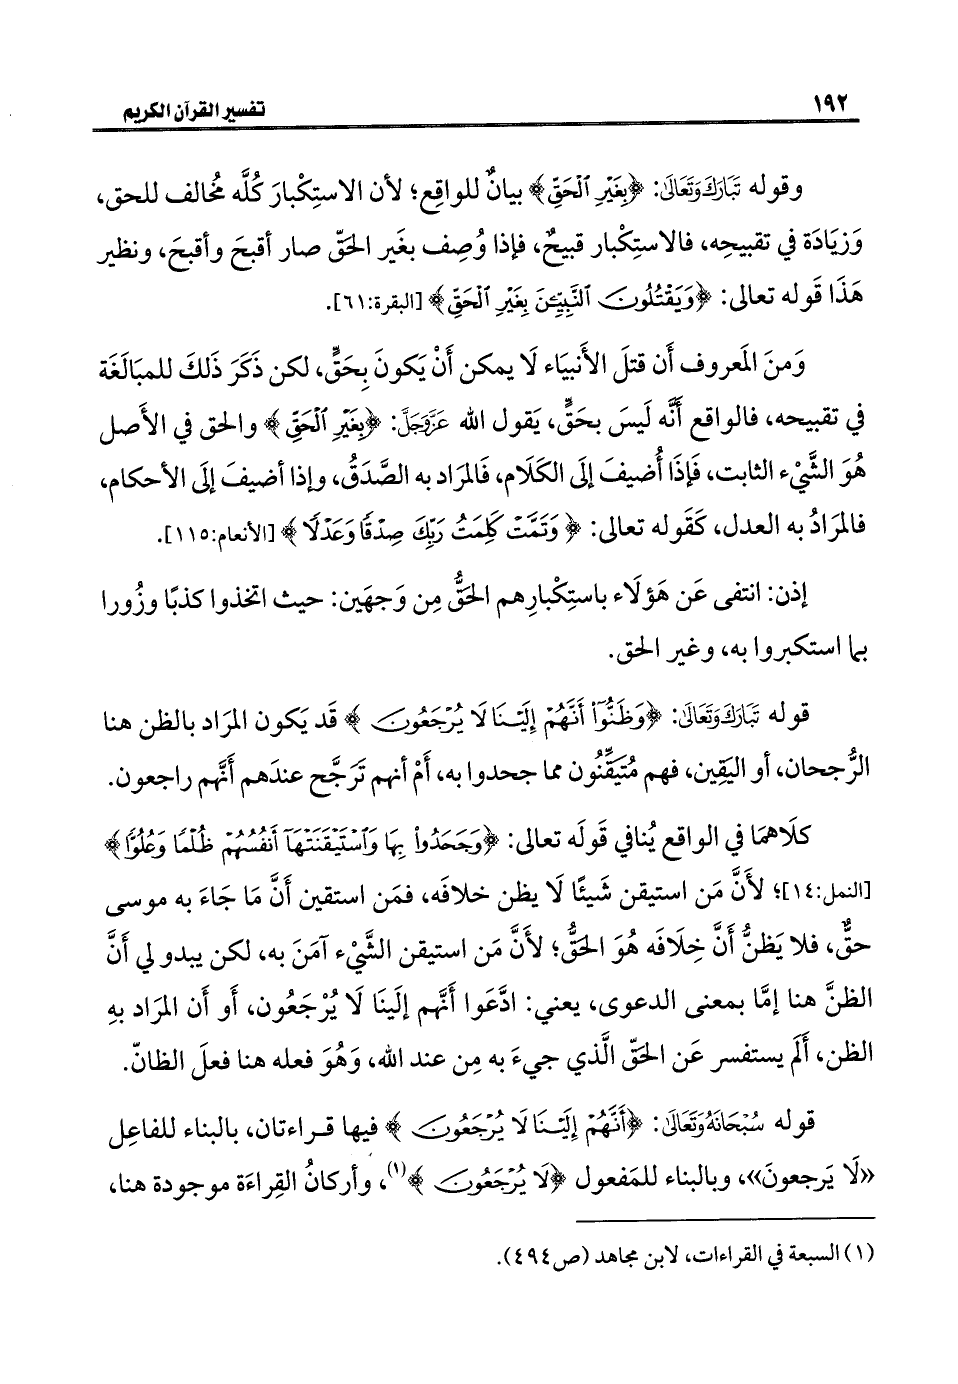 ١٩٢
تفسير القرآن الكريم
وقوله تَبَارَكَوَتَعَالَى: ﴿بِغَيْرِ ٱلْحَقِّ﴾ بيانٌ للواقِع؛ لأن الاستِكْبارَ كُلَّه مُخالف للحق،
وَزيَادَة في تقبيحِه، فالاستِكْبار قبيحٌ، فإذا وُصِف بغَير الحَقّ صار أقبحَ وأقبحَ، ونظير
هَذَا قَوله تعالى: ﴿وَيَقْتُلُونَ ٱلنَّبِيِّـۧنَ بِغَيْرِ ٱلْحَقِّ﴾ [البقرة:٦١].
وَمنَ المَعروف أن قتلَ الأنبيَاء لَا يمكن أَنْ يَكونَ بِحَقٍّ، لكن ذَكَرَ ذَلكَ للمبَالَغَة
في تقبيحه، فالواقع أَنَّه لَيسَ بحَقٍّ، يَقول الله عَزَّوَجَلَّ: ﴿بِغَيْرِ ٱلْحَقِّ﴾ والحق في الأَصل
هُوَ الشَّيْء الثابت، فَإِذَا أُضيفَ إلَى الكَلَام، فَالمرَاد به الصَّدَقُ، وإذا أضيفَ إلَى الأحكام،
فالمرَادُ به العدل، كَقَوله تعالى: ﴿وَتَمَّتْ كَلِمَتُ رَبِّكَ صِدْقًا وَعَدْلًا﴾ [الأنعام:١١٥].
إذن: انتفى عَن هَؤلَاء باستِكْبارِهم الحَقُّ مِن وَجهَين: حيث اتخذوا كذبًا وزُورا
بما استكبروا به، وغير الحق.
قوله تَبَارَكَوَتَعَالَى: ﴿وَظَنُّوٓا۟ أَنَّهُمْ إِلَيْنَا لَا يُرْجَعُونَ﴾ قَد يَكون المرَاد بالظن هنا
الرُّجحان، أو اليَقِين، فهم مُتَيَقِّنُون مما جحدوا به، أَمْ أنهم تَرَجَّح عندَهم أَنَّهم راجعون.
كلَاهمَا في الواقع يُنافي قَولَه تعالى: ﴿وَجَحَدُوا۟ بِهَا وَٱسْتَيْقَنَتْهَآ أَنفُسُهُمْ ظُلْمًا وَعُلُوًّا﴾
[النمل:١٤]؛ لأَنَّ مَن استيقن شَيئًا لَا يظن خلافَه، فمَن استقين أَنَّ مَا جَاءَ به موسى
حقٌّ، فلا يَظنُّ أَنَّ خِلافَه هُوَ الحَقُّ؛ لأَنَّ مَن استيقن الشَّيْء آمَنَ به، لكن يبدو لي أَنَّ
الظنَّ هنا إمَّا بمعنى الدعوى، يعني: ادَّعَوا أَنَّهم إلَينَا لَا يُرْجَعُون، أو أن المرَاد بهِ
الظن، أَلَم يستفسر عَن الحَقّ الَّذي جيءَ به مِن عند الله، وَهُوَ فعله هنا فعلَ الظانّ.
قوله سُبْحَانَهُوَتَعَالَى: ﴿أَنَّهُمْ إِلَيْنَا لَا يُرْجَعُونَ﴾ فيها قراءتان، بالبناء للفاعِل
«لَا يَرجعونَ»، وبالبناء للمَفعول ﴿لَا يُرْجَعُونَ﴾(١)، وأركانُ القِراءَة موجودة هنا،
(١) السبعة في القراءات، لابن مجاهد (ص٤٩٤).